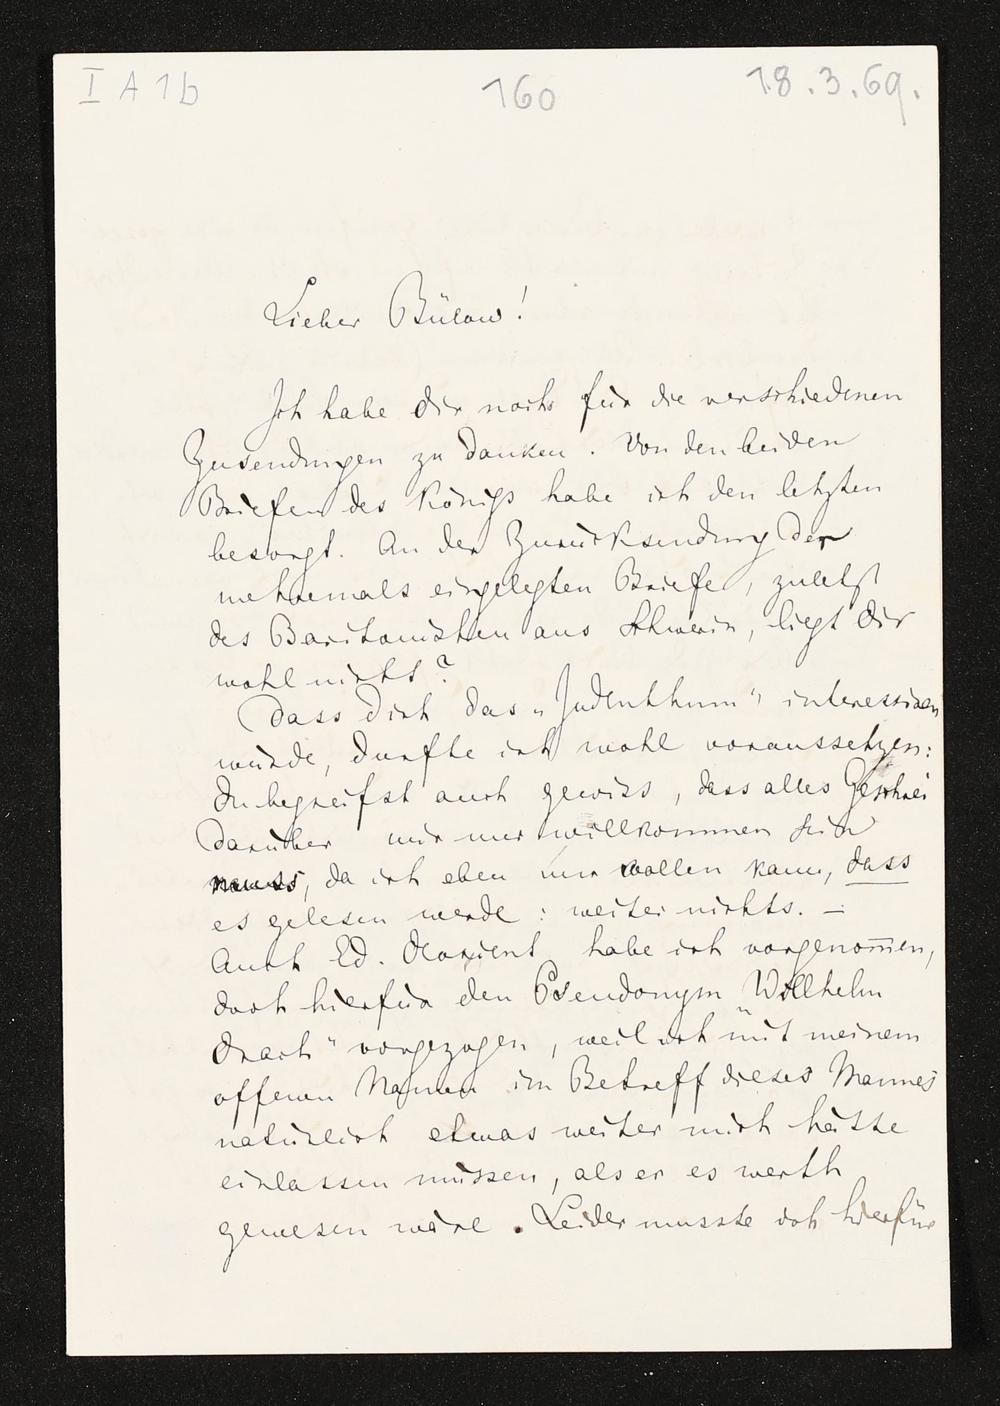 I A 1b 160 18.3.69.
Lieber Bülow!
Ich habe dir noch für die verschiedenen
Zusendungen zu danken. Von den beiden
Briefen des Königs habe ich den letzten
besorgt. An der Zurücksendung der
mehremals eingelegten Briefe, zuletzt
des Baritonisten aus Schwerin, liegt dir
wohl nichts?
Dass dich das „Judenthum" interessiren
würde, durfte ich wohl voraussetzen:
du begreifst auch gewiss, dass alles Geschrei
darüber mir nur willkommen sein
muss, da ich eben nur wollen kann, dass
es gelesen werde: weiter nichts. —
Auch Ed. Devrient habe ich vorgenom̅en,
doch hierfür den Pseudonym „Willhelm
Drach" vorgezogen, weil ich mit meinem
offenen Namen im Betreff dieses Mannes
natürlich etwas weiter mich hätte
einlassen müssen, als er es werth
gewesen wäre. Leider musste ich hierfür